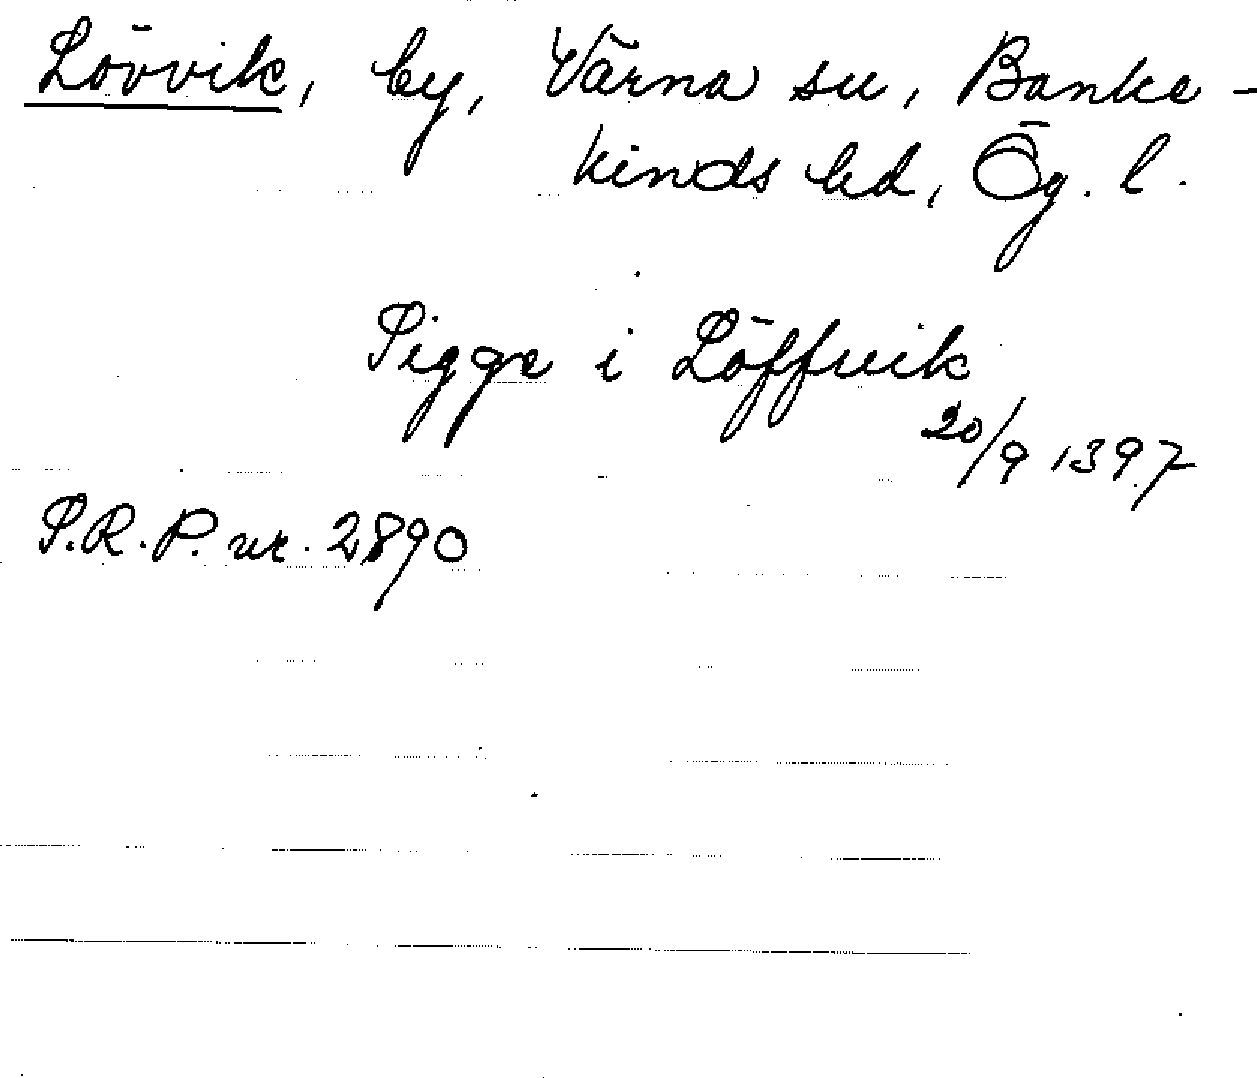 Lövvik, by, Värna sn, Banke-
kinds hd, Ög. l.
Sigge i Löffuik
20/9 1397
S.R.P. nr. 2890